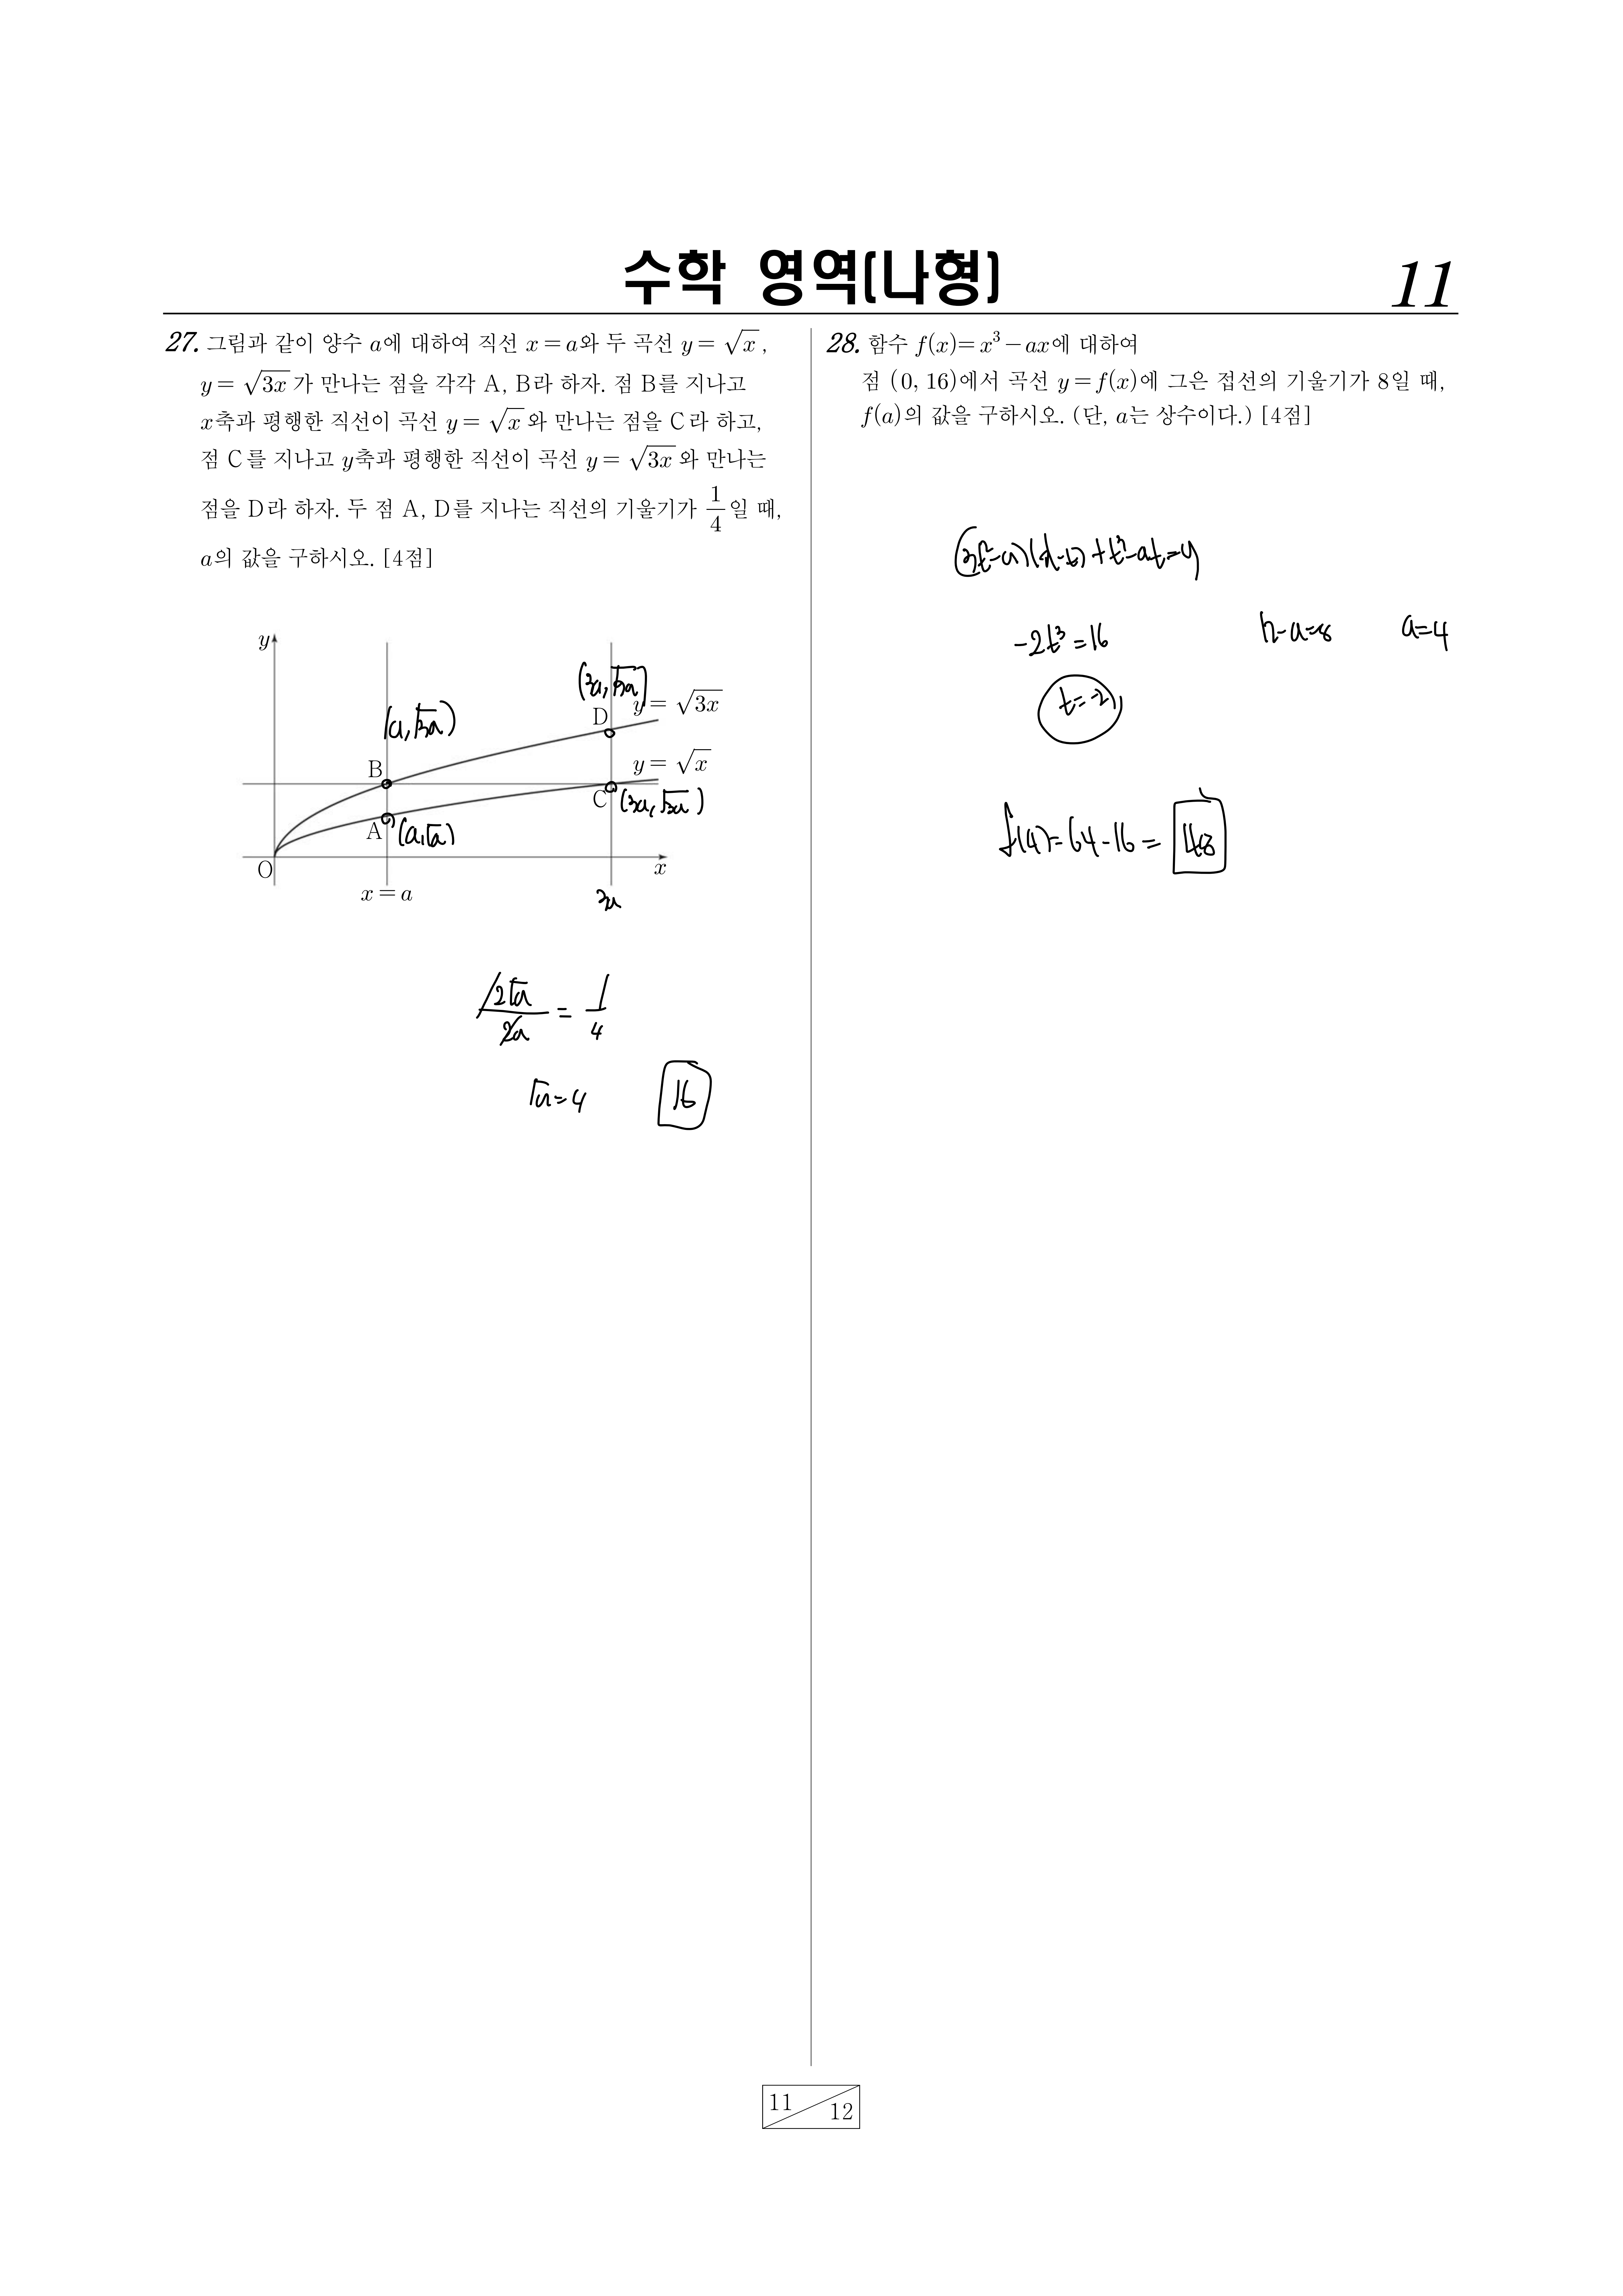 수학 영역(나형)
11
27. 그림과 같이 양수 a에 대하여 직선 x=a와 두 곡선 y=√x,
y=√3x가 만나는 점을 각각 A, B라 하자. 점 B를 지나고
x축과 평행한 직선이 곡선 y=√x와 만나는 점을 C라 하고,
점 C를 지나고 y축과 평행한 직선이 곡선 y=√3x와 만나는
점을 D라 하자. 두 점 A, D를 지나는 직선의 기울기가 1/4일 때,
a의 값을 구하시오. [4점]
y
(a, √3a)
D
y=√3x
B
y=√x
C
(3a, √3a)
A
(a, √a)
O
x
x=a
3a
2√a/2a = 1/4
√a=4
16
28. 함수 f(x)=x³-ax에 대하여
점 (0, 16)에서 곡선 y=f(x)에 그은 접선의 기울기가 8일 때,
f(a)의 값을 구하시오. (단, a는 상수이다.) [4점]
(3t²-a)(x-t)+t³-at=y
-2t³=16
a=4
t=-2
f(4)=64-16=
48
11
12